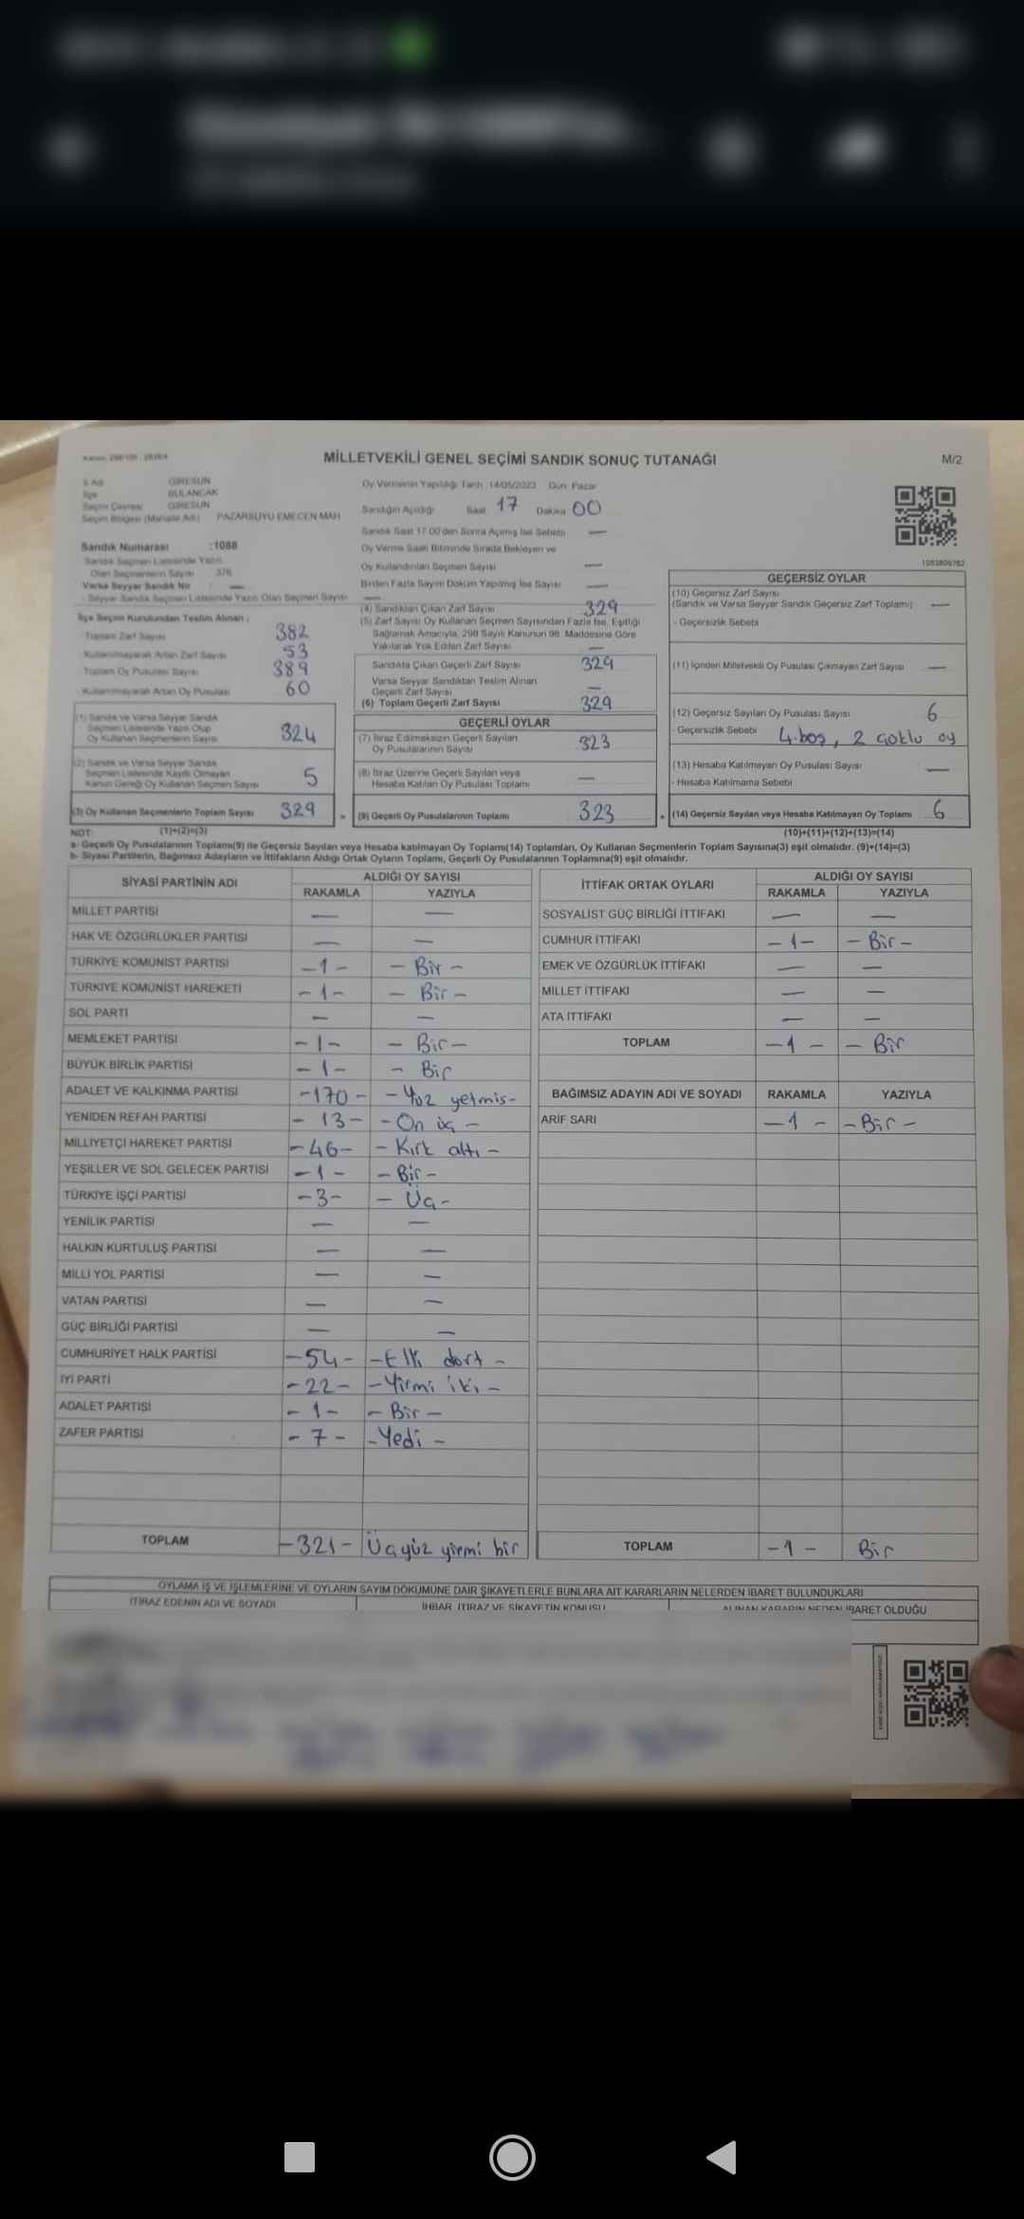 MİLLETVEKİLİ GENEL SEÇİMİ SANDIK SONUÇ TUTANAĞI
M/2
İl Adı GİRESUN
İlçe BULANCAK
Seçim Çevresi GİRESUN
Seçim Bölgesi (Mahalle Adı) PAZARSUYU EMECEN MAH
Sandık Numarası :1088
Sandık Seçmen Listesinde Yazılı
Olan Seçmenlerin Sayısı 376
Varsa Seyyar Sandık No —
Seyyar Sandık Seçmen Listesinde Yazılı Olan Seçmen Sayısı —
İlçe Seçim Kurulundan Teslim Alınan :
Toplam Zarf Sayısı 382
Kullanılmayarak Artan Zarf Sayısı 53
Toplam Oy Pusulası Sayısı 389
Kullanılmayarak Artan Oy Pusulası 60
(1) Sandık ve Varsa Seyyar Sandık
Seçmen Listesinde Yazılı Olup
Oy Kullanan Seçmenlerin Sayısı 324
(2) Sandık ve Varsa Seyyar Sandık
Seçmen Listesinde Kayıtlı Olmayan
Kanun Gereği Oy Kullanan Seçmen Sayısı 5
(3) Oy Kullanan Seçmenlerin Toplam Sayısı 329
(1)+(2)=(3)
Oy Vermenin Yapıldığı Tarih :14/05/2023 Gün: Pazar
Sandığın Açıldığı Saat 17 Dakika 00
Sandık Saat 17.00'den Sonra Açılmış İse Sebebi —
Oy Verme Saati Bitiminde Sırada Bekleyen ve
Oy Kullandırılan Seçmen Sayısı —
Birden Fazla Sayım Döküm Yapılmış İse Sayısı —
(4) Sandıktan Çıkan Zarf Sayısı 329
(5) Zarf Sayısı Oy Kullanan Seçmen Sayısından Fazla İse, Eşitliği
Sağlamak Amacıyla, 298 Sayılı Kanunun 98. Maddesine Göre
Yakılarak Yok Edilen Zarf Sayısı —
Sandıkta Çıkan Geçerli Zarf Sayısı 329
Varsa Seyyar Sandıktan Teslim Alınan
Geçerli Zarf Sayısı —
(6) Toplam Geçerli Zarf Sayısı 329
GEÇERLİ OYLAR
(7) İtiraz Edilmeksizin Geçerli Sayılan
Oy Pusulalarının Sayısı 323
(8) İtiraz Üzerine Geçerli Sayılan veya
Hesaba Katılan Oy Pusulası Toplamı —
(9) Geçerli Oy Pusulalarının Toplamı 323
1083809762
GEÇERSİZ OYLAR
(10) Geçersiz Zarf Sayısı
(Sandık ve Varsa Seyyar Sandık Geçersiz Zarf Toplamı) —
- Geçersizlik Sebebi
(11) İçinden Milletvekili Oy Pusulası Çıkmayan Zarf Sayısı —
(12) Geçersiz Sayılan Oy Pusulası Sayısı 6
- Geçersizlik Sebebi 4 boş, 2 çoklu oy
(13) Hesaba Katılmayan Oy Pusulası Sayısı —
- Hesaba Katılmama Sebebi
(14) Geçersiz Sayılan veya Hesaba Katılmayan Oy Toplamı 6
(10)+(11)+(12)+(13)=(14)
NOT:
a- Geçerli Oy Pusulalarının Toplamı(9) ile Geçersiz Sayılan veya Hesaba katılmayan Oy Toplamı(14) Toplamları, Oy Kullanan Seçmenlerin Toplam Sayısına(3) eşit olmalıdır. (9)+(14)=(3)
b- Siyasi Partilerin, Bağımsız Adayların ve İttifakların Aldığı Ortak Oyların Toplamı, Geçerli Oy Pusulalarının Toplamına(9) eşit olmalıdır.
SİYASİ PARTİNİN ADI ALDIĞI OY SAYISI
RAKAMLA YAZIYLA
MİLLET PARTİSİ — —
HAK VE ÖZGÜRLÜKLER PARTİSİ — —
TÜRKİYE KOMÜNİST PARTİSİ -1- - Bir -
TÜRKİYE KOMÜNİST HAREKETİ -1- - Bir -
SOL PARTİ — —
MEMLEKET PARTİSİ -1- - Bir -
BÜYÜK BİRLİK PARTİSİ -1- - Bir
ADALET VE KALKINMA PARTİSİ -170- - Yüz yetmiş -
YENİDEN REFAH PARTİSİ - 13 - - On üç -
MİLLİYETÇİ HAREKET PARTİSİ -46- - Kırk altı -
YEŞİLLER VE SOL GELECEK PARTİSİ -1- - Bir -
TÜRKİYE İŞÇİ PARTİSİ -3- - Üç -
YENİLİK PARTİSİ — —
HALKIN KURTULUŞ PARTİSİ — —
MİLLİ YOL PARTİSİ — —
VATAN PARTİSİ — —
GÜÇ BİRLİĞİ PARTİSİ — —
CUMHURİYET HALK PARTİSİ -54- - Elli dört -
İYİ PARTİ -22- - Yirmi iki -
ADALET PARTİSİ -1- - Bir -
ZAFER PARTİSİ -7- - Yedi -
TOPLAM -321- Üçyüz yirmi bir
İTTİFAK ORTAK OYLARI ALDIĞI OY SAYISI
RAKAMLA YAZIYLA
SOSYALİST GÜÇ BİRLİĞİ İTTİFAKI — —
CUMHUR İTTİFAKI -1- - Bir -
EMEK VE ÖZGÜRLÜK İTTİFAKI — —
MİLLET İTTİFAKI — —
ATA İTTİFAKI — —
TOPLAM -1- - Bir
BAĞIMSIZ ADAYIN ADI VE SOYADI RAKAMLA YAZIYLA
ARİF SARI -1- - Bir -
TOPLAM -1- Bir
OYLAMA İŞ VE İŞLEMLERİNE VE OYLARIN SAYIM DÖKÜMÜNE DAİR ŞİKAYETLERLE BUNLARA AİT KARARLARIN NELERDEN İBARET BULUNDUKLARI
İTİRAZ EDENİN ADI VE SOYADI İHBAR, İTİRAZ VE ŞİKAYETİN KONUSU ALINAN KARARIN NEDEN İBARET OLDUĞU